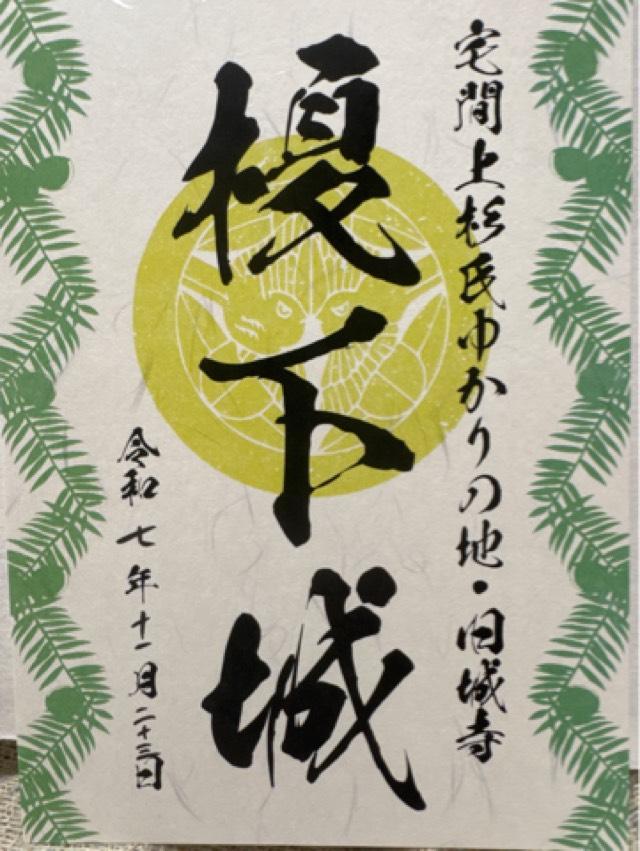 宅間上杉氏ゆかりの地・旧城寺
榎下城
令和七年十一月二十三日